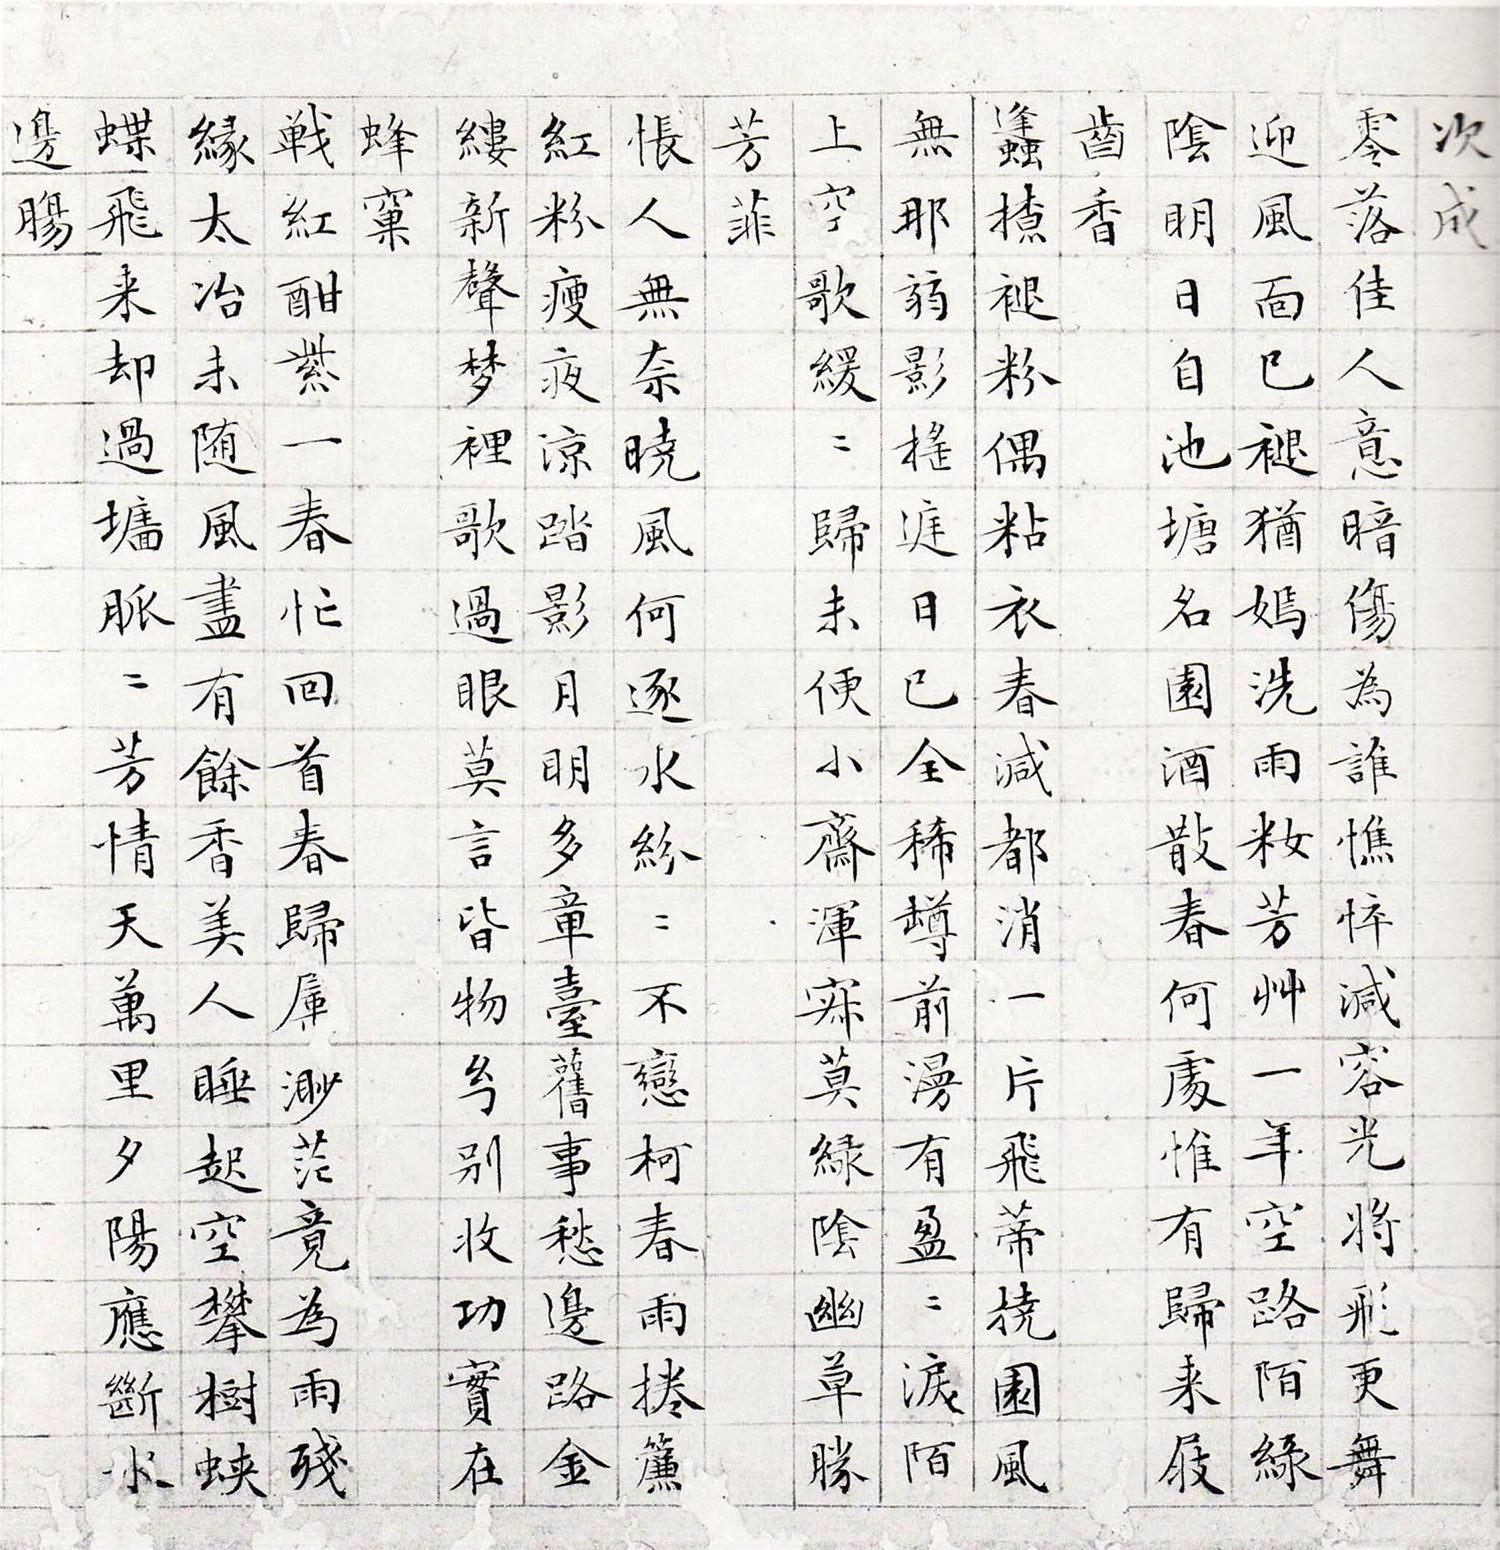 次成
零落佳人意暗傷為誰憔悴減容光将飛更舞
迎風面已褪猶嫣洗雨粧芳艸一年空路陌綠
陰明日自池塘名園酒散春何處惟有歸来屐
齒香
䗬撩褪粉偶粘衣春減都消一片飛蒂撓園風
無那弱影搖庭日已全稀樽前漫有盈〻淚陌
上空歌緩〻歸未便小齋渾寂莫緑陰幽草勝
芳菲
悵人無奈曉風何逐水紛〻不戀柯春雨捲簾
紅粉瘦夜涼踏影月明多章臺舊事愁邊路金
縷新聲梦裡歌過眼莫言皆物幻别收功實在
蜂窠
戦紅酣紫一春忙回首春歸屬渺茫竟為雨殘
緣太冶未随風盡有餘香美人睡起空攀樹蛺
蝶飛来却過墻脈〻芳情天萬里夕陽應斷水
邊腸